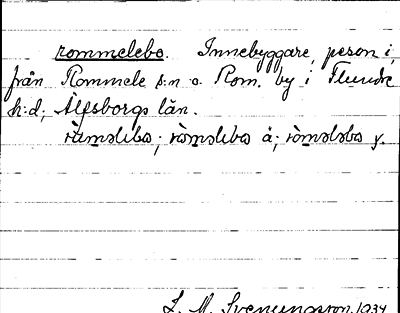 rommelebo. Innebyggare, peson i,
från Rommele s:n o. Rom. by i Flundre
h:d, Älfsborgs län.
ràmsləbo; ròmsləbo å; ròmələbo y.
L. M. Svenungsson 1934